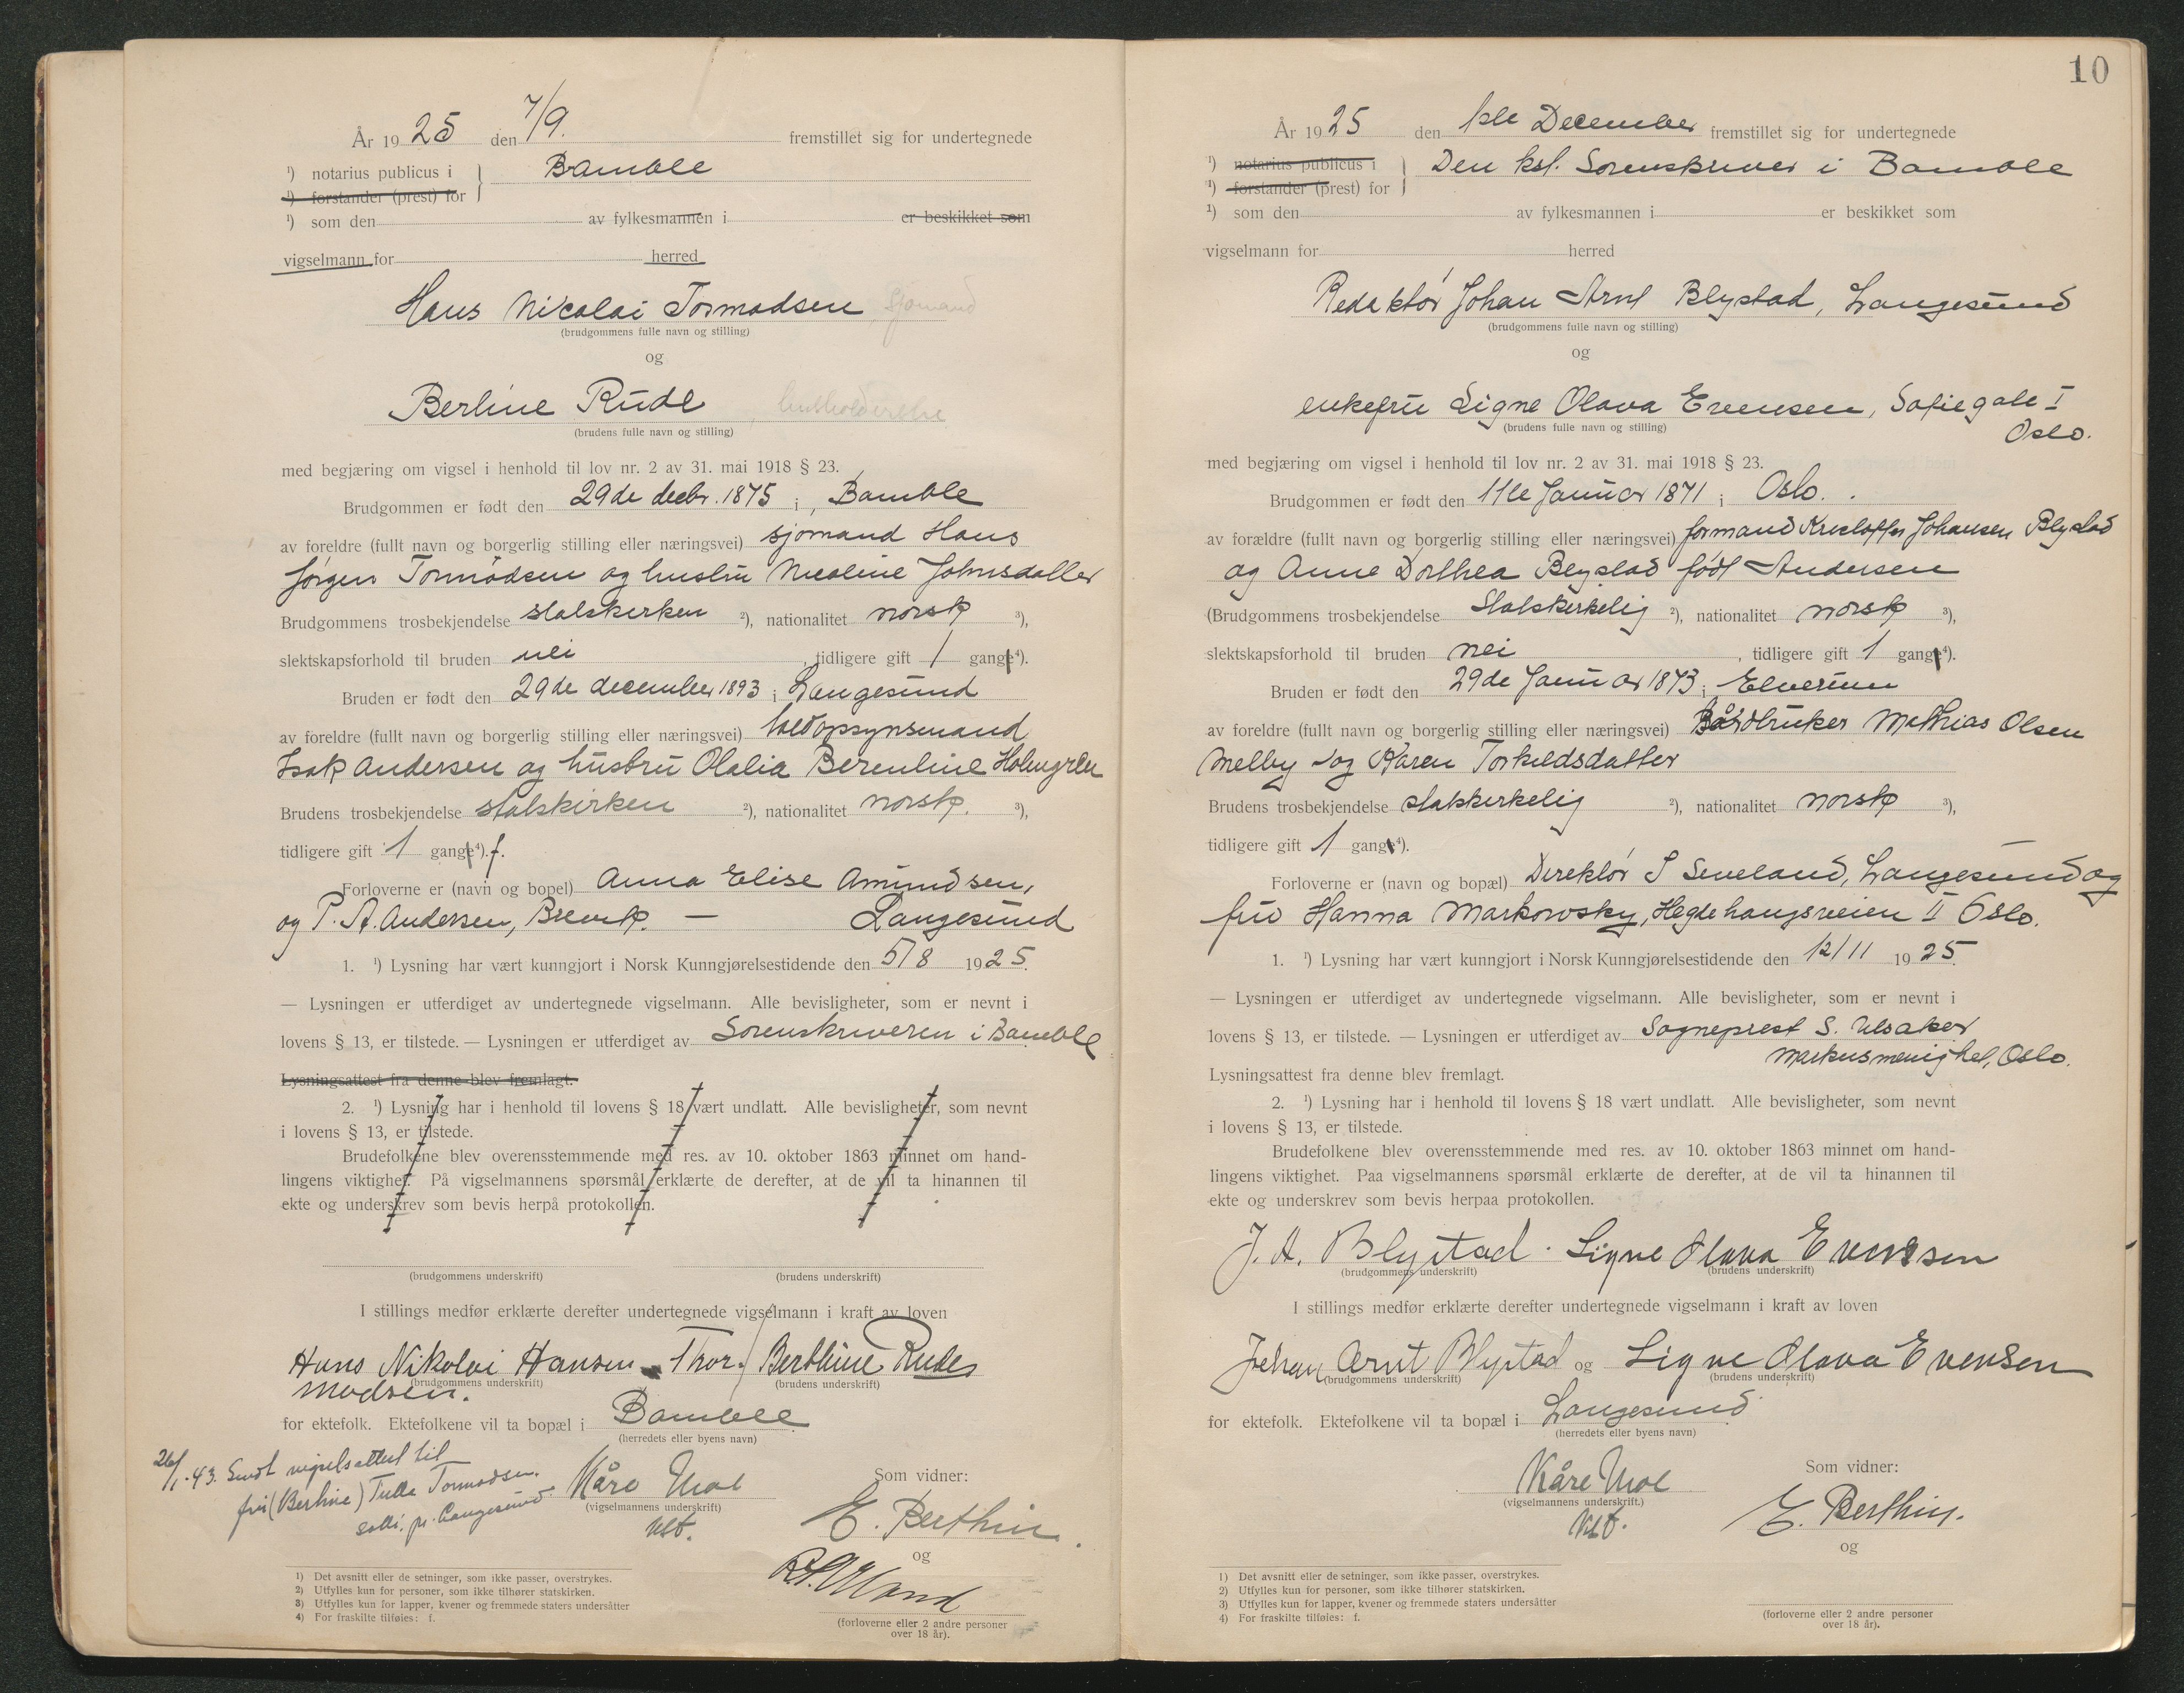 År 1925 den 7/9. fremstillet sig for undertegnede
¹) notarius publicus i } Bamble
¹) forstander (prest) for
¹) som den av fylkesmannen i er beskikket som
vigselmann for herred
Hans Nicolai Tormodsen, sjømand
(brudgommens fulle navn og stilling)
og
Bertine Rude, husholderske
(brudens fulle navn og stilling)
med begjæring om vigsel i henhold til lov nr. 2 av 31. mai 1918 § 23.
Brudgommen er født den 29de decbr. 1875 i, Bamble
av foreldre (fullt navn og borgerlig stilling eller næringsvei) sjømand Hans
Jørgen Tormodsen og hustru Nicoline Johnsdatter
Brudgommens trosbekjendelse statskirken ²), nationalitet norsk ³),
slektskapsforhold til bruden nei, tidligere gift 1 gange⁴).
Bruden er født den 29de december 1893 i Langesund
av foreldre (fullt navn og borgerlig stilling eller næringsvei) toldopsynsmand
Isak Andersen og hustru Olalia Berentine Holmgren
Brudens trosbekjendelse statskirken ²), nationalitet norsk. ³),
tidligere gift 1 gange⁴). f.
Forloverne er (navn og bopel) Anna Elise Amundsen,
og P. A. Andersen, Brevik. — Langesund
1. ¹) Lysning har vært kunngjort i Norsk Kunngjørelsestidende den 5/8 1925.
— Lysningen er utferdiget av undertegnede vigselmann. Alle bevisligheter, som er nevnt i
lovens § 13, er tilstede. — Lysningen er utferdiget av Sorenskriveren i Bamble
Lysningsattest fra denne blev fremlagt.
2. ¹) Lysning har i henhold til lovens § 18 vært undlatt. Alle bevisligheter, som nevnt
i lovens § 13, er tilstede.
Brudefolkene blev overensstemmende med res. av 10. oktober 1863 minnet om hand-
lingens viktighet. På vigselmannens spørsmål erklærte de derefter, at de vil ta hinannen til
ekte og underskrev som bevis herpå protokollen.
(brudgommens underskrift) (brudens underskrift)
I stillings medfør erklærte derefter undertegnede vigselmann i kraft av loven
Hans Nikolai Hansen Thor/ Berthine Rudes
modsen.
(brudgommens underskrift) (brudens underskrift)
for ektefolk. Ektefolkene vil ta bopæl i Bamble
(herredets eller byens navn)
26/1.43. Sendt vigselsattest til
fru (Bertine) Tulla Tormodsen.
pr. Langesund
Kåre
(vigselmannens underskrift)
Som vidner:
E. Berthin.
og
(forloverne eller 2 andre personer
over 18 år).
1) Det avsnitt eller de setninger, som ikke passer, overstrykes.
2) Utfylles kun for personer, som ikke tilhører statskirken.
3) Utfylles kun for lapper, kvener og fremmede staters undersåtter
4) For fraskilte tilføies: f.
10
År 1925 den 1ste December fremstillet sig for undertegnede
¹) notarius publicus i } Den kst. Sorenskriver i Bamble
¹) forstander (prest) for
¹) som den av fylkesmannen i er beskikket som
vigselmann for herred
Redaktør Johan Arnt Blystad, Langesund
(brudgommens fulle navn og stilling)
og
enkefru Signe Olava Evensen, Sofiegate I
Oslo.
(brudens fulle navn og stilling)
med begjæring om vigsel i henhold til lov nr. 2 av 31. mai 1918 § 23.
Brudgommen er født den 11te Januar 1871 i Oslo.
av forældre (fullt navn og borgerlig stilling eller næringsvei) formand Kristoffer Johansen Blystad
og Anne Dorthea Blystad født Andersen
(Brudgommens trosbekjendelse Statskirkelig ²), nationalitet norsk ³),
slektskapsforhold til bruden nei, tidligere gift 1 gange⁴).
Bruden er født den 29de Januar 1873 i Elverum
av foreldre (fullt navn og borgerlig stilling eller næringsvei) Gårdbruker Mathias Olsen
Melby og Karen Torkildsdatter
Brudens trosbekjendelse statskirkelig ²), nationalitet norsk ³),
tidligere gift 1 gange⁴).
Forloverne er (navn og bopæl) Direktør S Seveland, Langesund og
fru Hanna Markowsky, Hegdehaugsveien II Oslo.
1. ¹) Lysning har vært kunngjort i Norsk Kunngjørelsestidende den 12/11 1925.
— Lysningen er utferdiget av undertegnede vigselmann. Alle bevisligheter, som er nevnt i
lovens § 13, er tilstede. — Lysningen er utferdiget av Sogneprest S. Ulsaker
Markusmenighet, Oslo.
Lysningsattest fra denne blev fremlagt.
2. ¹) Lysning har i henhold til lovens § 18 vært undlatt. Alle bevisligheter, som nevnt
i lovens § 13, er tilstede.
Brudefolkene blev overensstemmende med res. av 10. oktober 1863 minnet om hand-
lingens viktighet. Paa vigselmannens spørsmål erklærte de derefter, at de vil ta hinannen til
ekte og underskrev som bevis herpaa protokollen.
J. A. Blystad. Signe Olava Evensen
(brudgommens underskrift) (brudens underskrift)
I stillings medfør erklærte derefter undertegnede vigselmann i kraft av loven
Johan Arnt Blystad og Signe Olava Evensen
(brudgommens underskrift) (brudens underskrift)
for ektefolk. Ektefolkene vil ta bopæl i Langesund
(herredets eller byens navn)
Kåre
(vigselmannens underskrift.)
Som vidner:
E. Berthin.
og
(forloverne eller 2 andre personer
over 18 år).
1) Det avsnitt eller de setninger, som ikke passer, overstrykes.
2) Utfylles kun for personer, som ikke tilhører statskirken.
3) Utfylles kun for lapper, kvener og fremmede staters undersåtter
4) For fraskilte tilføies: f.